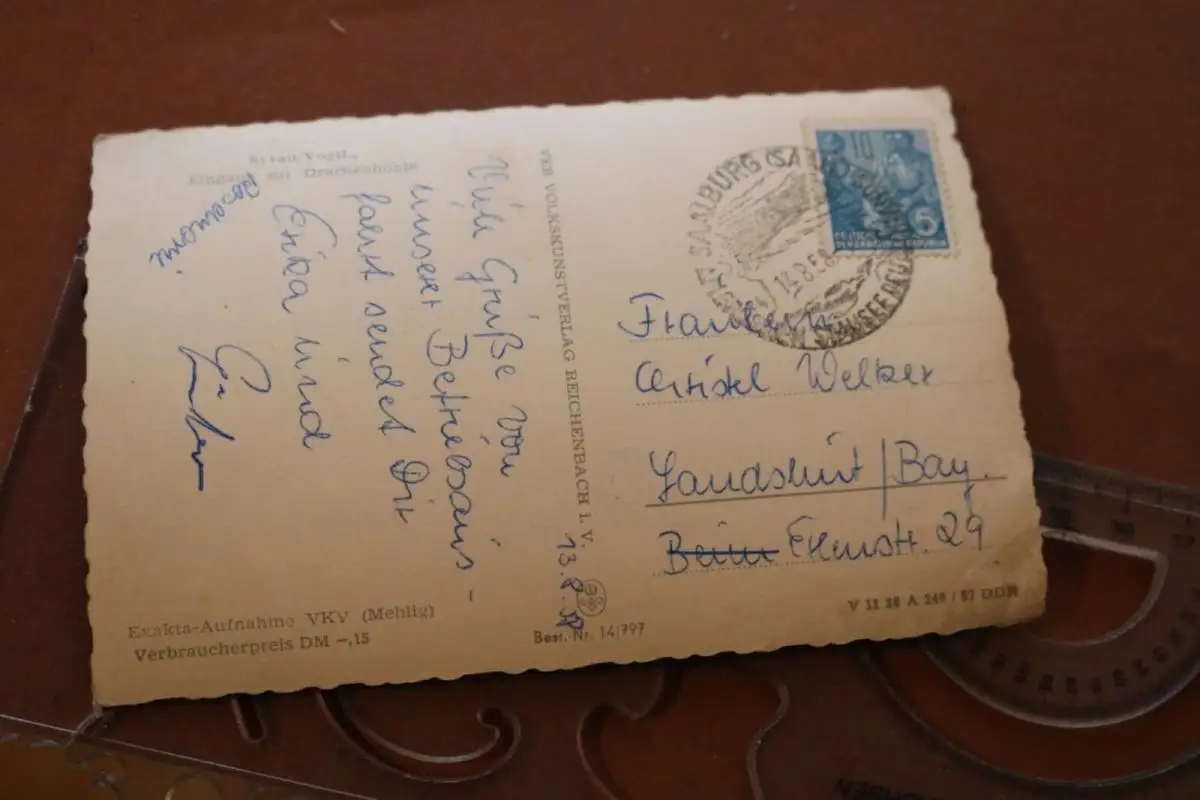 Syrau/Vogtl.,
Eingang zur Drachenhöhle
Viele Grüße von
unserer Betriebsaus-
fahrt sendet Dir
Erika und
Rosemarie.
VEB VOLKSKUNSTVERLAG REICHENBACH i. V.
13.8.58
Exakta-Aufnahme VKV (Mehlig)
Verbraucherpreis DM –,15
Best. Nr. 14/797
SAALBURG (SAALE)
13.8.58
10
5
DEUTSCHE
DEMOKRATISCHE REPUBLIK
Fräulein
Christel Welker
Landshut/Bay.
Beim 29
V 11 28 A 248/57 DDR